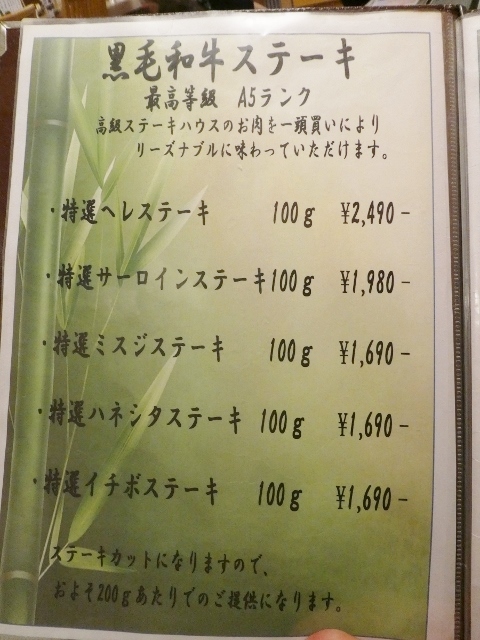 黒毛和牛ステーキ
最高等級 A5ランク
高級ステーキハウスのお肉を一頭買いにより
リーズナブルに味わっていただけます。
・特選ヘレステーキ 100g ¥2,490-
・特選サーロインステーキ100g ¥1,980-
・特選ミスジステーキ 100g ¥1,690-
・特選ハネシタステーキ 100g ¥1,690-
・特選イチボステーキ 100g ¥1,690-
ステーキカットになりますので、
およそ200gあたりでのご提供になります。